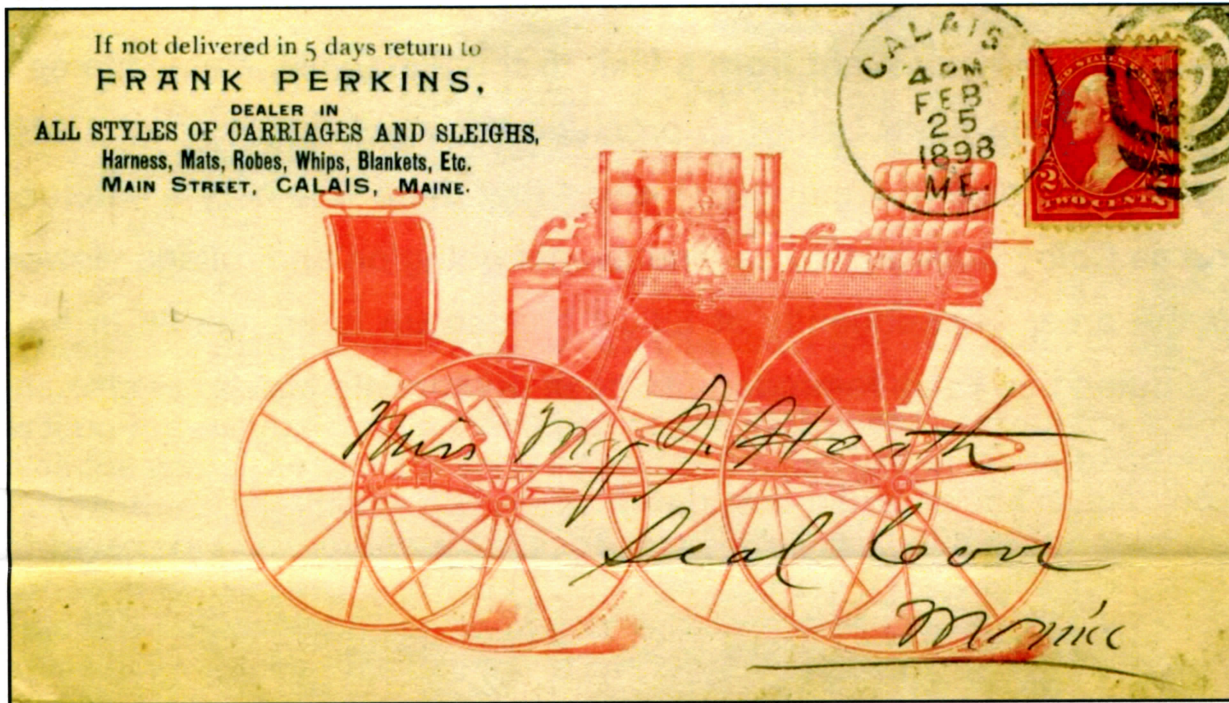 If not delivered in 5 days return to
FRANK PERKINS,
DEALER IN
ALL STYLES OF CARRIAGES AND SLEIGHS,
Harness, Mats, Robes, Whips, Blankets, Etc.
MAIN STREET, CALAIS, MAINE.
CALAIS
4 PM
FEB
25
1898
ME.
UNITED STATES
2 2
TWO CENTS
Miss J. Heath
Seal Cove
Maine